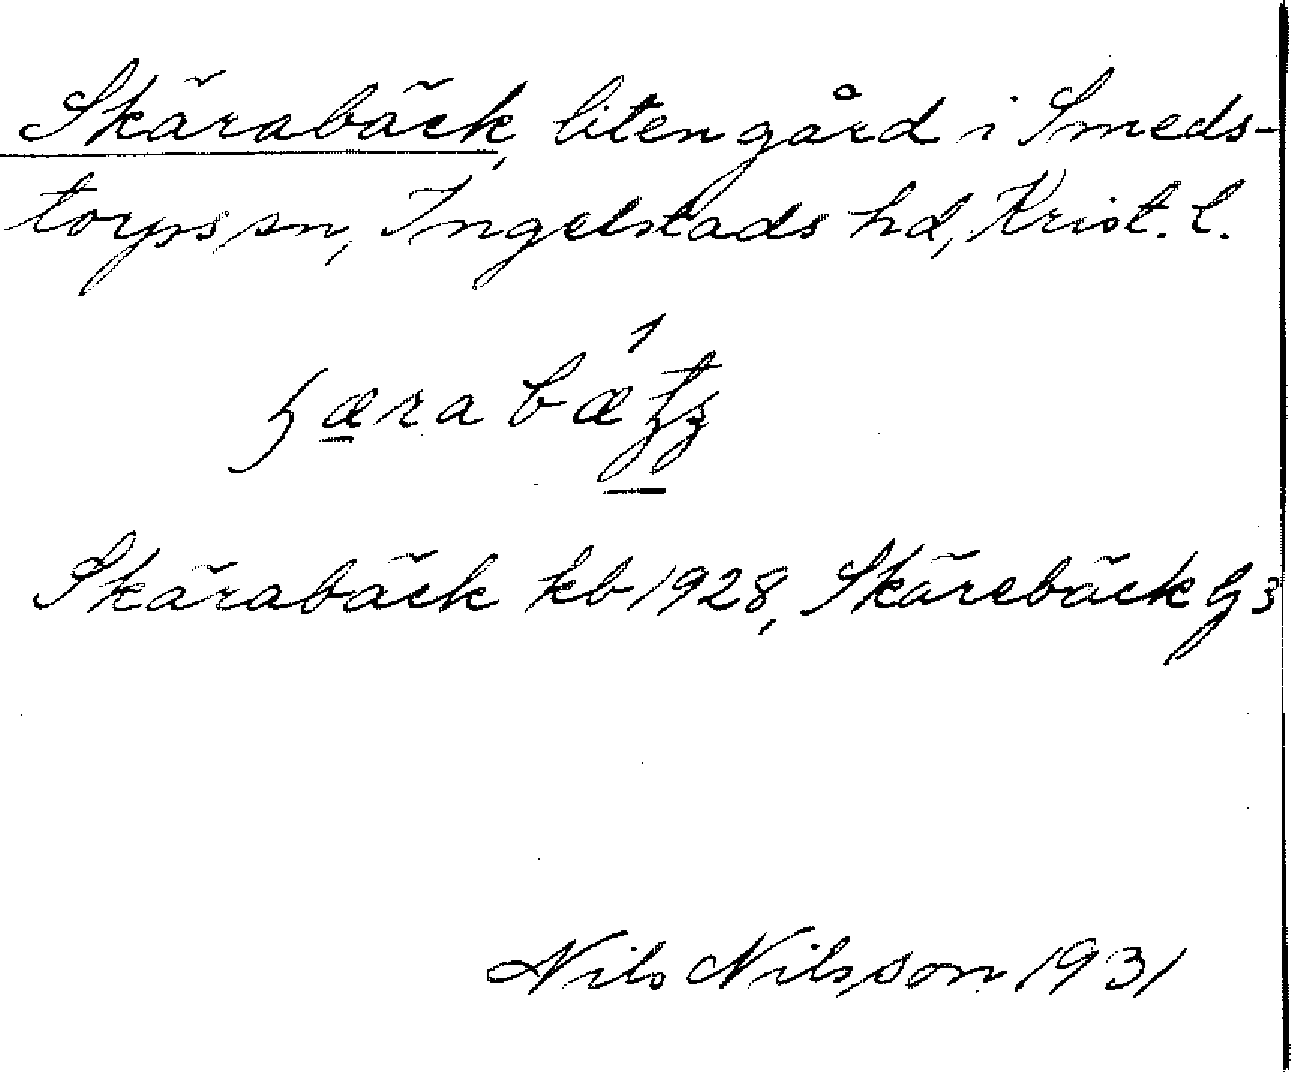 Skärabäck, liten gård i Smeds-
torps sn, Ingelstads hd, Krist. l.
Skärabäck kb 1928, Skärebäck G3
Nils Nilsson 1931